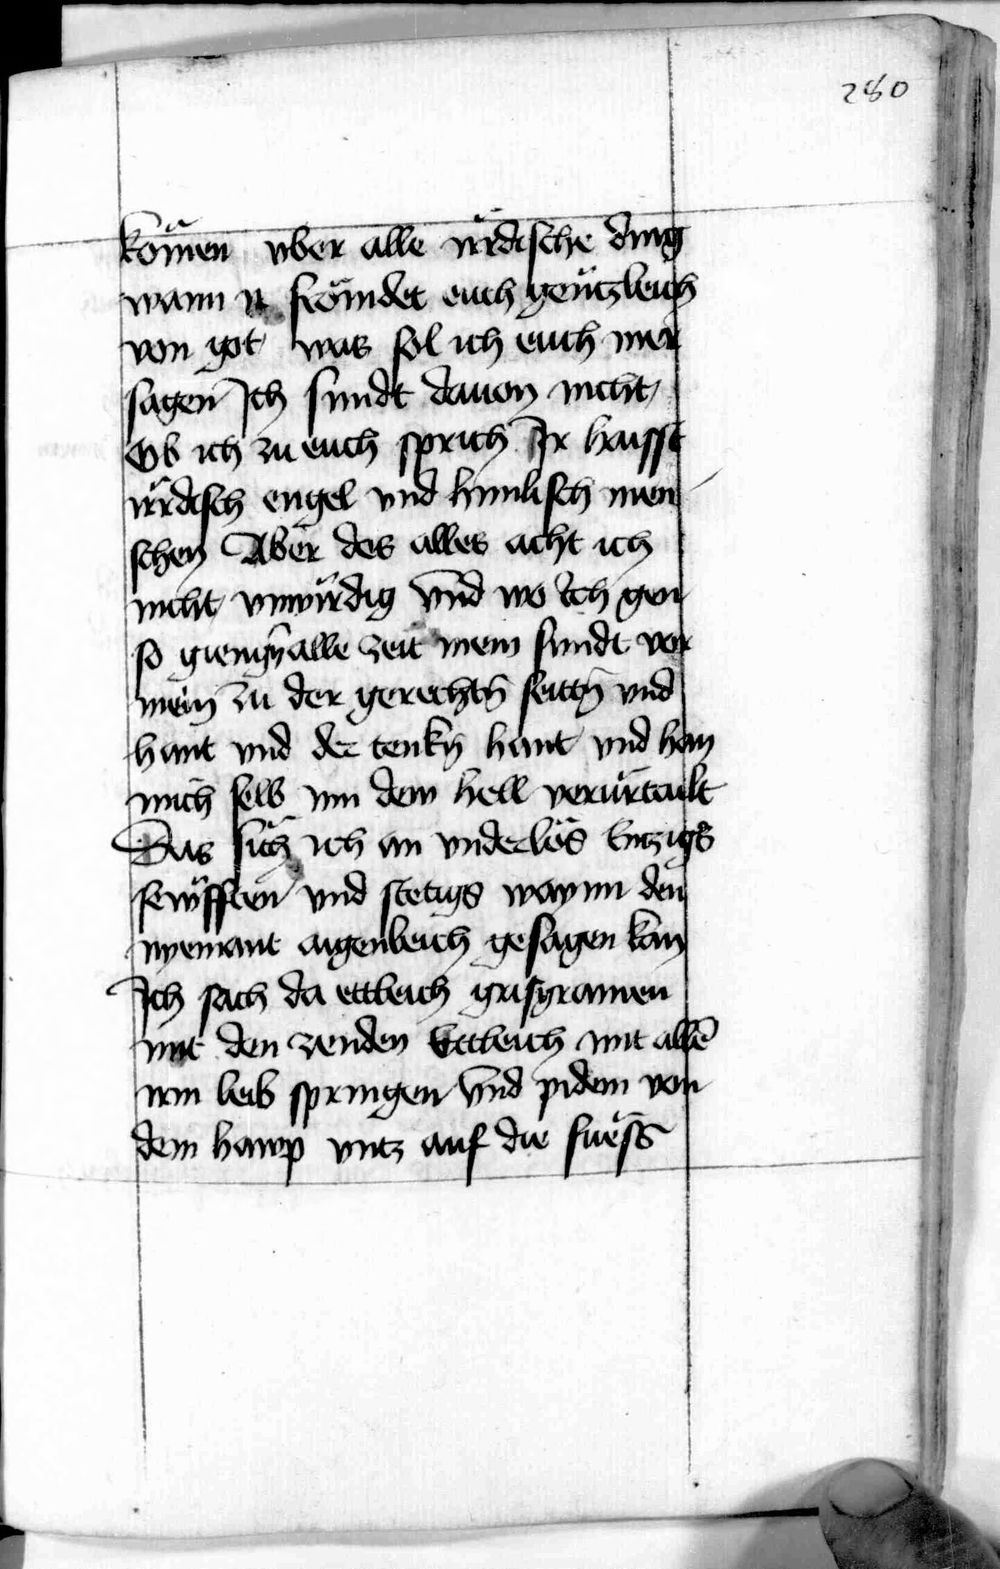 280
kömen vber alle irrdische ding
wann ir frömdet euch gentzleich
von got was sol ich euch mer
sagen Ich sundt dauon nicht
Ob ich zu euch sprich Ir haisst
irrdisch engel vnd himlisch men
schen Aber des alles acht ich
nicht vnwirdig Vnd wo Ich gen
so giengn̄ alle zeit mein sundt vor
mein zu der gerechtn̄ seittn̄ vnd
hant vnd der tenkn̄ hant vnd han
mich selb inn dem hell verurtailt
Das sich ich an vnderlös hitzigs
sewfften vnd stetigs waynn den
nyemant aigenleich gesagen kan
Ich sach da ettleich grisgramen
mit den zenden Ettleich mit allē
irm leib springen Vnd pidem von
dem hawp vntz auf die füess